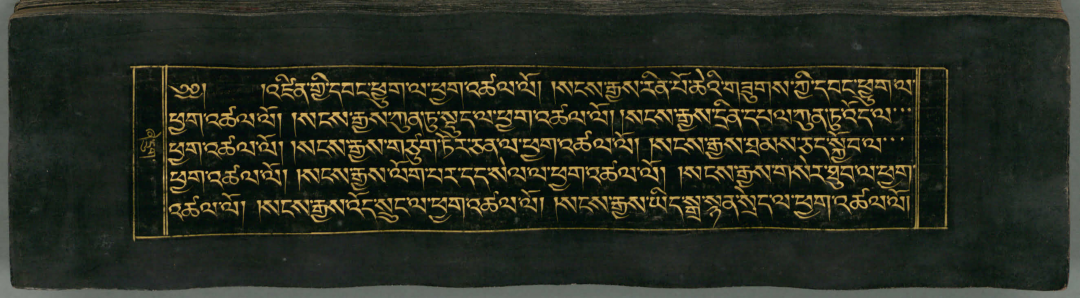 ༄༅། །འཛིན་གྱི་དབང་ཕྱུག་ལ་ཕྱག་འཚལ་ལོ། །སངས་རྒྱས་རིན་པོ་ཆེའི་གཟུགས་ཀྱི་དབང་ཕྱུག་ལ་
ཕྱག་འཚལ་ལོ། །སངས་རྒྱས་ཀུན་ཏུ་སྡུད་ལ་ཕྱག་འཚལ་ལོ། །སངས་རྒྱས་དྲིན་དཔལ་ཀུན་ཏུ་འོད་ལ་
ཕྱག་འཚལ་ལོ། །སངས་རྒྱས་གཙུག་ཏོར་ཅན་ལ་ཕྱག་འཚལ་ལོ། །སངས་རྒྱས་བྲམས་ཅད་སྐྱོབ་ལ་
ཕྱག་འཚལ་ལོ། །སངས་རྒྱས་ལོག་པར་དད་སེལ་ལ་ཕྱག་འཚལ་ལོ། །སངས་རྒྱས་གསེར་ཐུབ་ལ་ཕྱག་
འཚལ་ལོ། །སངས་རྒྱས་འོད་སྲུང་ལ་ཕྱག་འཚལ་ལོ། །སངས་རྒྱས་ཡིད་སྒྲ་སྙན་སྲེད་ལ་ཕྱག་འཚལ་ལོ།